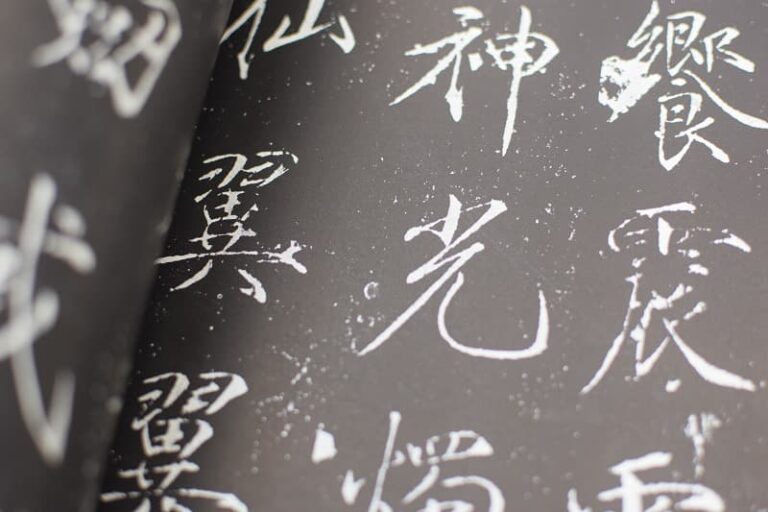 饗震
神光燭
仙翼翼